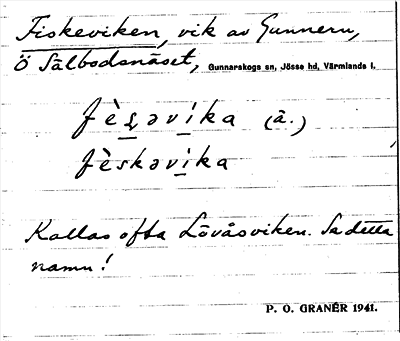 Fiskeviken, vik av Gunnern,
Ö Sälbodsnäset, Gunnarskogs sn, Jösse hd, Värmlands l.
fèʂəvika (ä.)
fèskəvika
Kallas ofta Lövåsviken. Se detta
namn!
P. O. GRANÉR 1941.